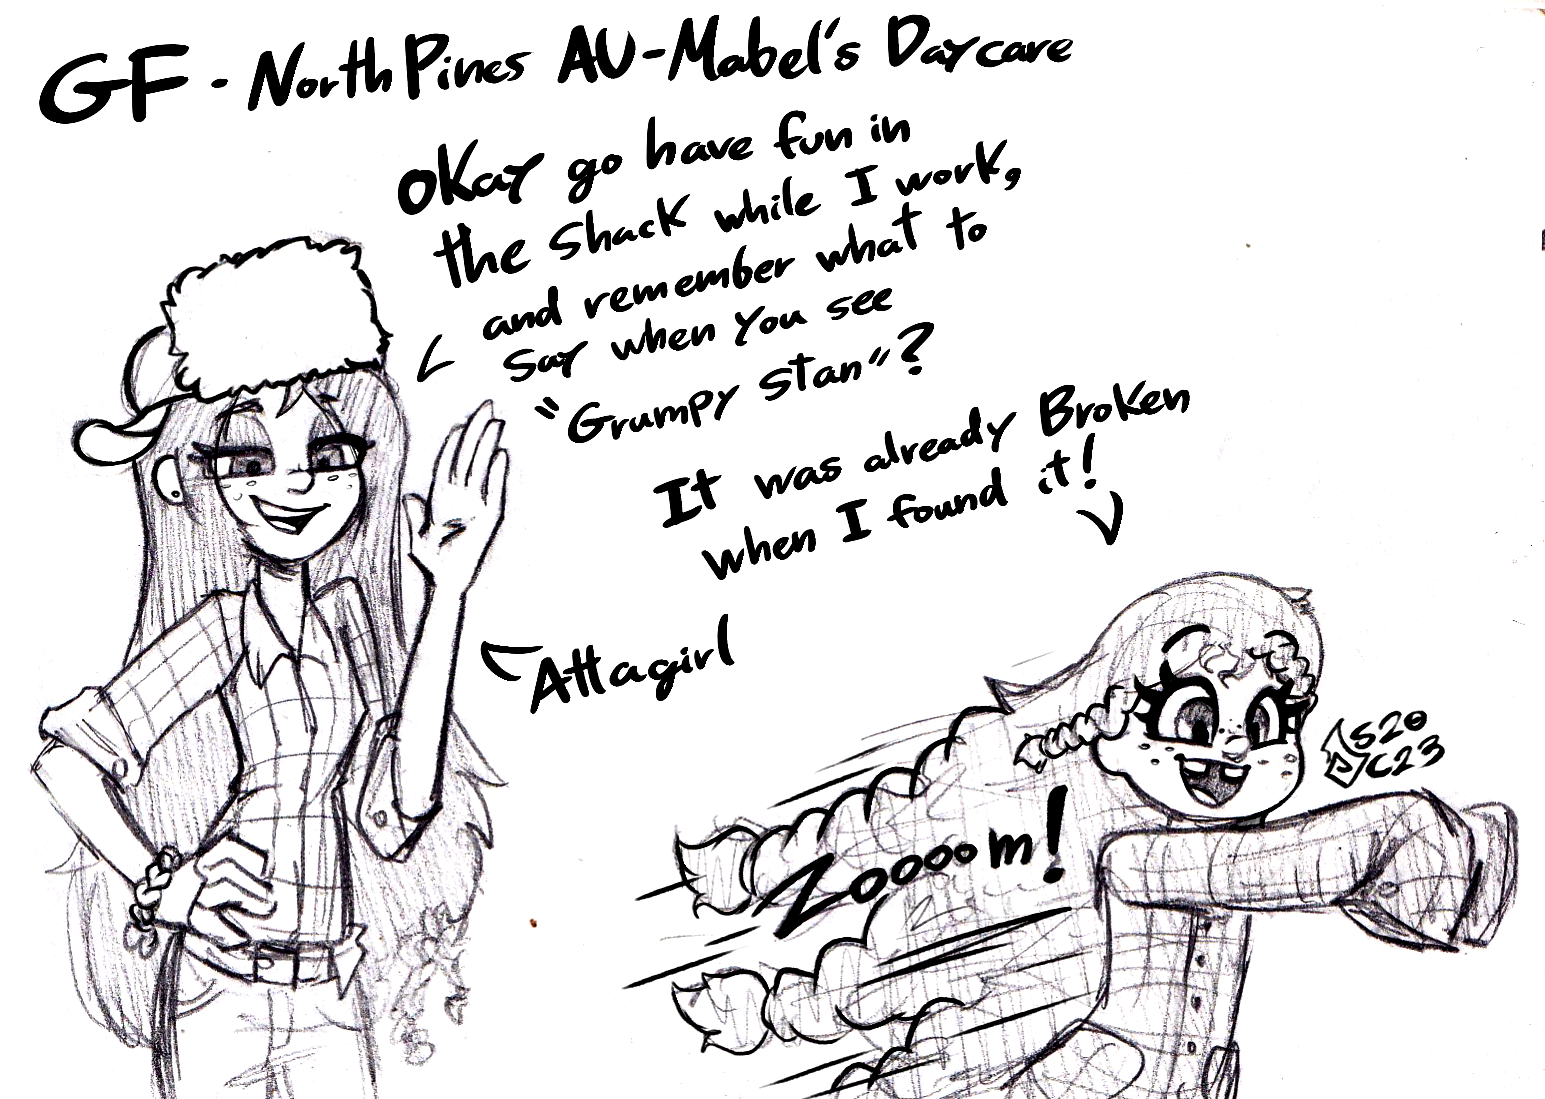 GF - North Pines AU - Mabel's Daycare
Okay go have fun in
the Shack while I work,
and remember what to
say when you see
"Grumpy Stan"?
It was already Broken
when I found it!
Attagirl
Zoooom!
S20
C23